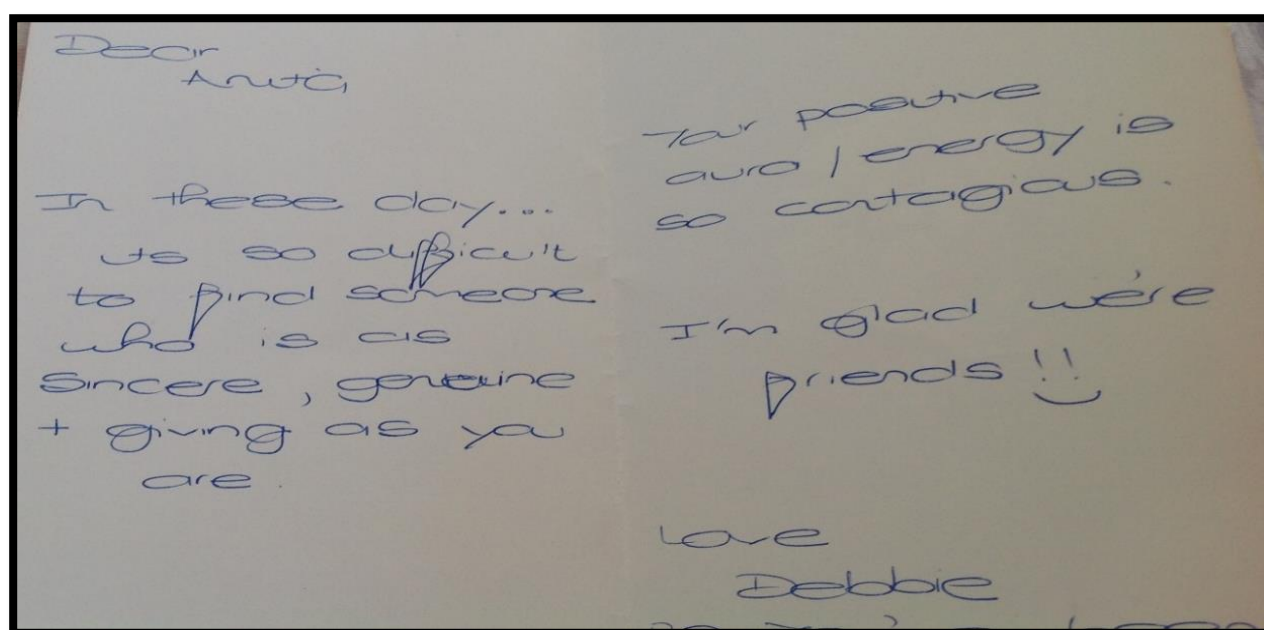 Dear
Anita
In these day...
its so difficult
to find someone
who is as
sincere, genuine
+ giving as you
are.
Your positive
aura / energy is
so contagious.
I'm glad we're
friends !!
Love
Debbie